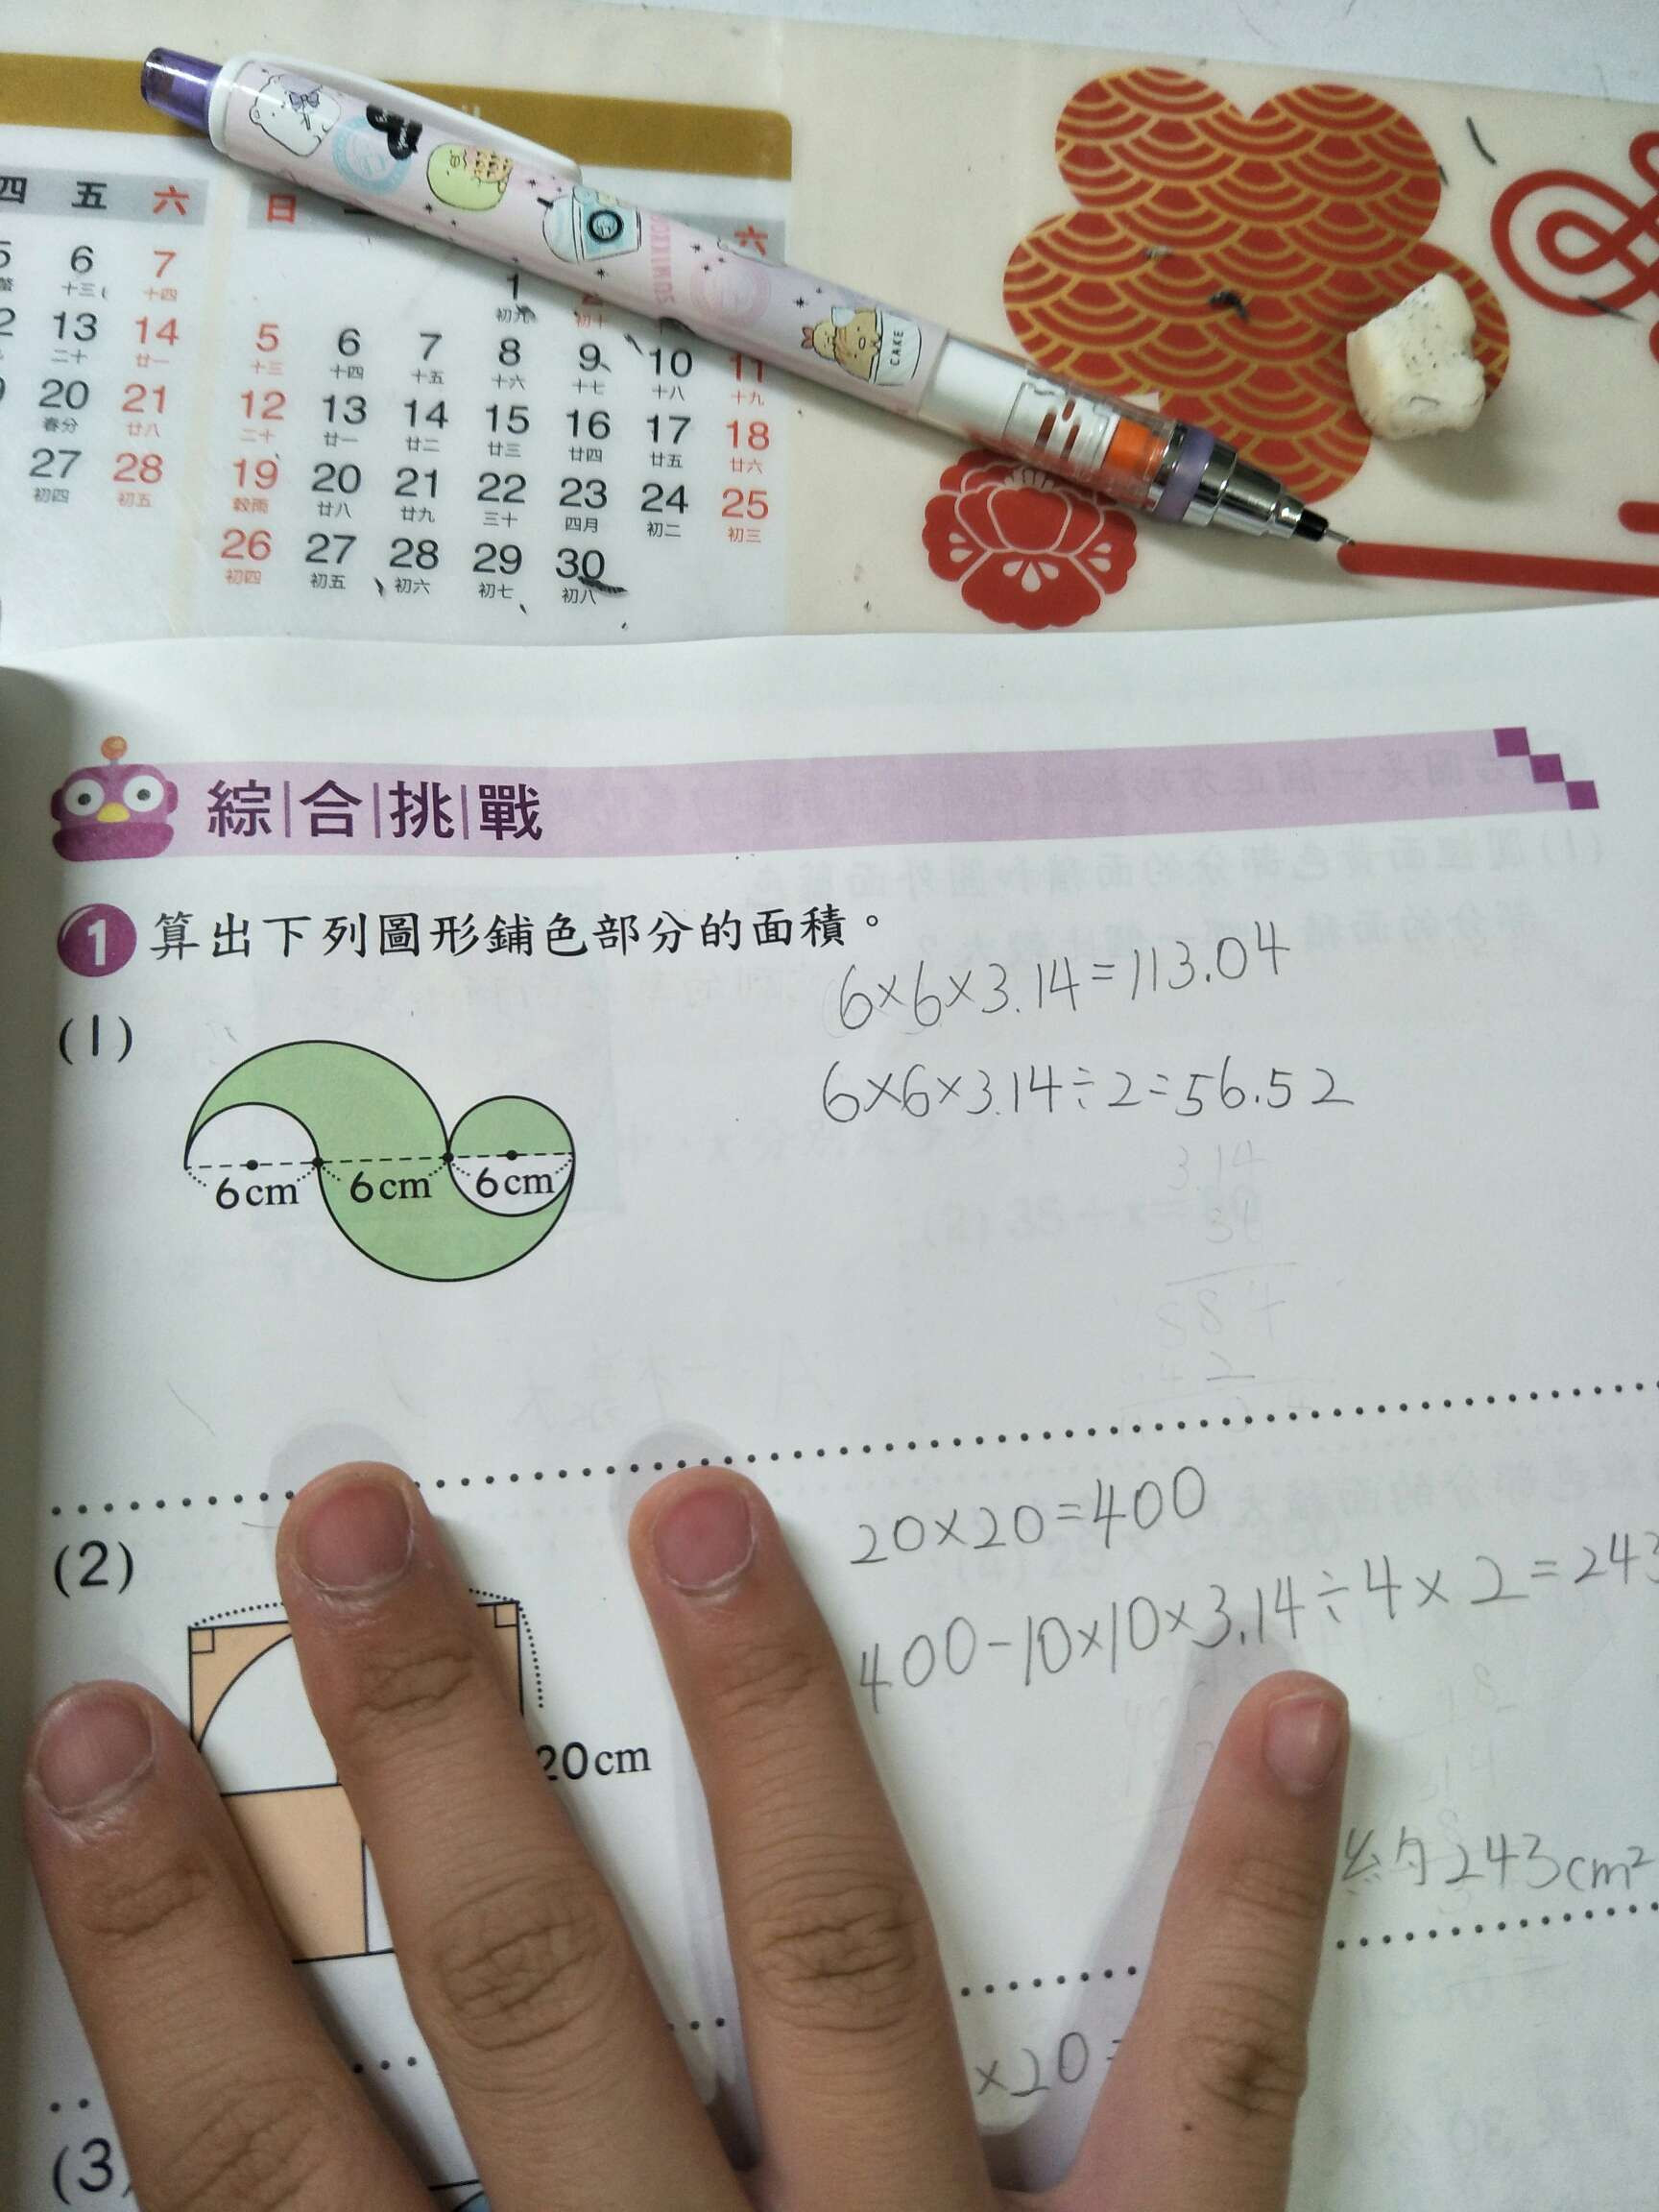 四 五 六
6 7
十三 十四
13 14
二十 廿一
20 21
春分 廿八
27 28
初四 初五
日 六
1
初九 初十
5 6 7 8 9 10 11
十三 十四 十五 十六 十七 十八 十九
12 13 14 15 16 17 18
二十 廿一 廿二 廿三 廿四 廿五 廿六
19 20 21 22 23 24 25
穀雨 廿八 廿九 三十 四月 初二 初三
26 27 28 29 30
初四 初五 初六 初七 初八
CAKE
綜合挑戰
1 算出下列圖形鋪色部分的面積。
6×6×3.14=113.04
(1)
6×6×3.14÷2=56.52
6cm 6cm 6cm
20×20=400
(2)
400-10×10×3.14÷4×2=243
20cm
約243cm²
×20=
(3)